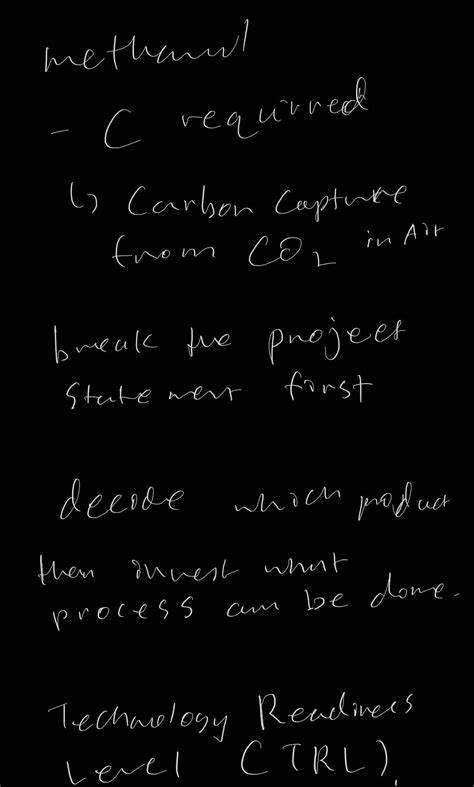 methanol
- C required
↳ Carbon Capture
from CO2 in Air
break the project
statement first
decide which product
then invest what
process can be done.
Technology Readiness
Level (TRL)